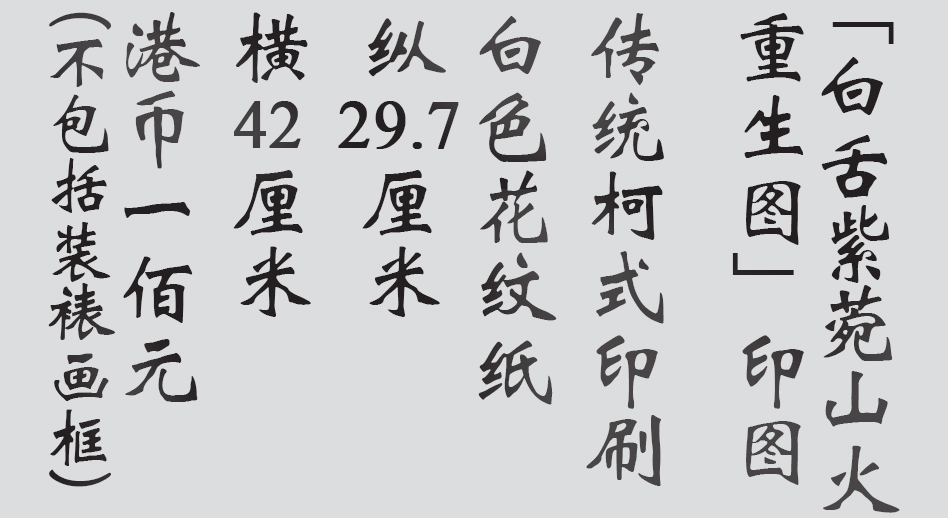 「白舌紫菀山火
重生图」 印图
传统柯式印刷
白色花纹纸
纵29.7厘米
横42厘米
港币一佰元
(不包括装裱画框)